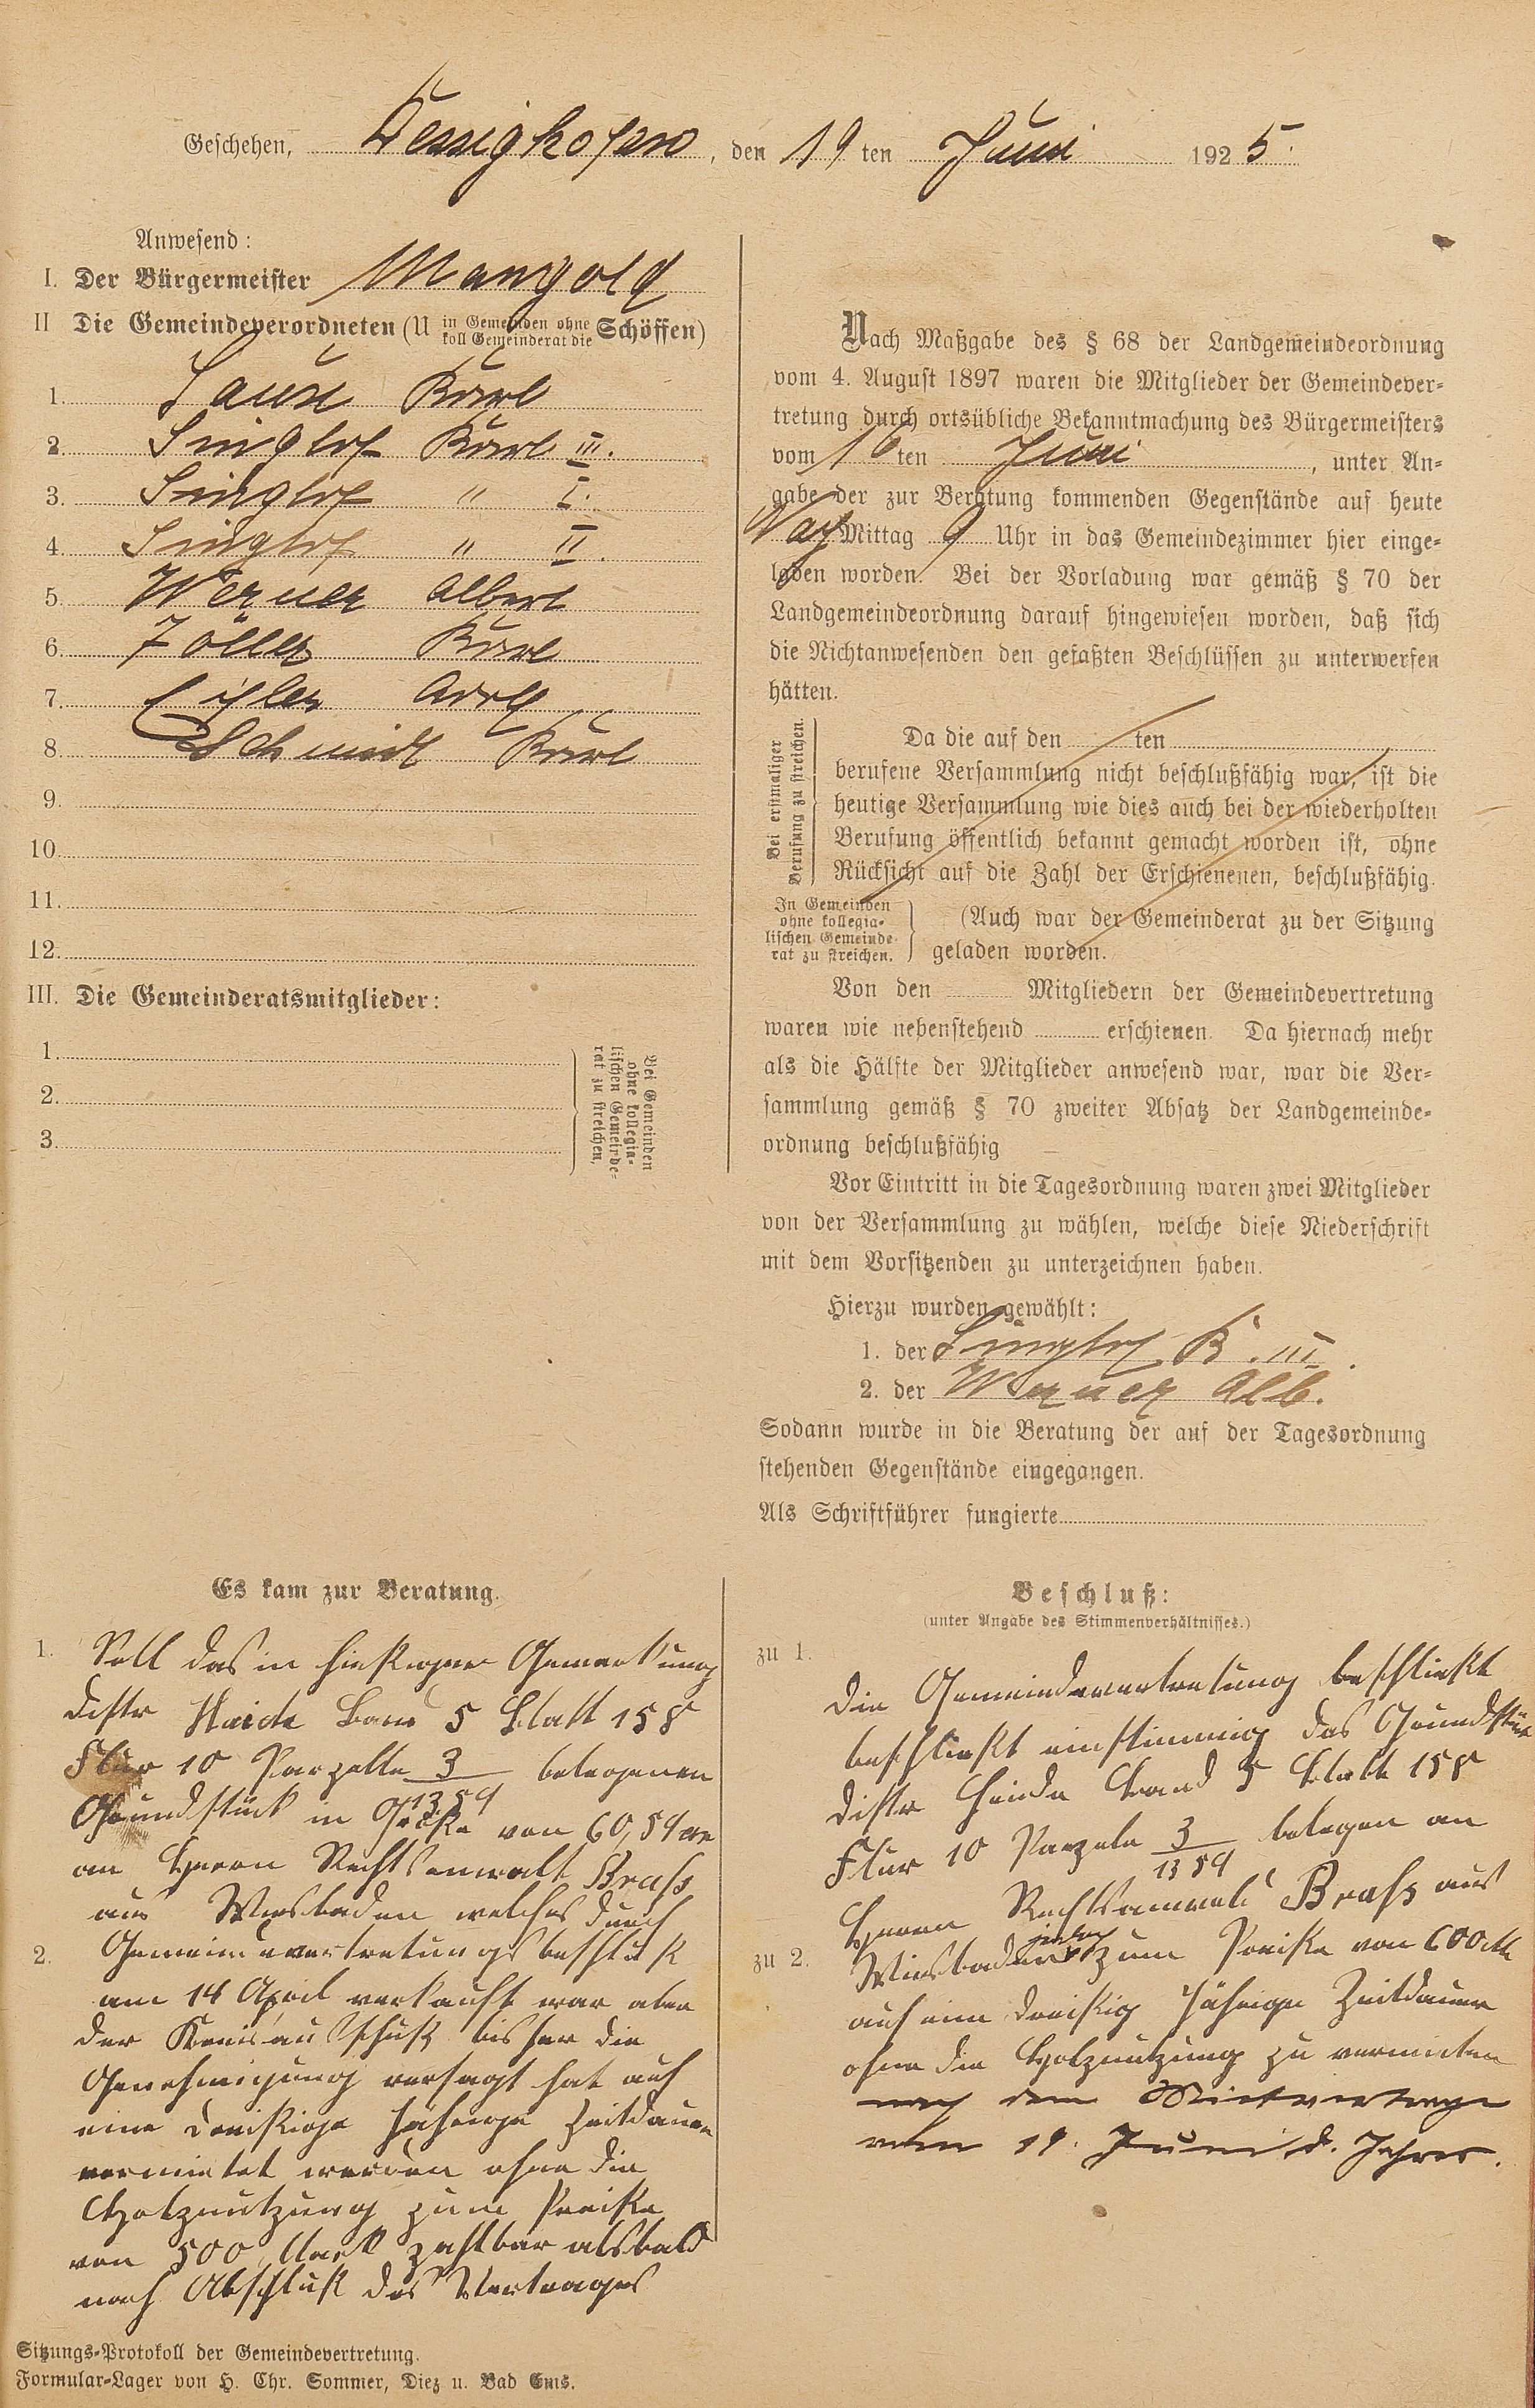 Geschehen, Dessighofen, den 19ten Juni 1925.
Anwesend:
I. Der Bürgermeister Mangold
II Die Gemeindeverordneten (U in Gemeinden ohne koll Gemeinderat die Schöffen)
1. Karl
2. Singhof Karl III.
3. Singhof " I.
4. Singhof " II.
5. Werner Albert
6. Zöller Karl
7. Adolf
8. Schmidt Karl
9.
10.
11.
12.
III. Die Gemeinderatsmitglieder:
1.
2.
3.
Bei Gemeinden
ohne kollegia-
lischen Gemeinde-
rat zu streichen.
Nach Maßgabe des § 68 der Landgemeindeordnung
vom 4. August 1897 waren die Mitglieder der Gemeindever-
tretung durch ortsübliche Bekanntmachung des Bürgermeisters
vom 16ten Juni, unter An-
gabe der zur Beratung kommenden Gegenstände auf heute
Nach Mittag 9 Uhr in das Gemeindezimmer hier einge-
laden worden. Bei der Vorladung war gemäß § 70 der
Landgemeindeordnung darauf hingewiesen worden, daß sich
die Nichtanwesenden den gefaßten Beschlüssen zu unterwerfen
hätten.
Bei erstmaliger
Berufung zu streichen.
Da die auf den ten
berufene Versammlung nicht beschlußfähig war, ist die
heutige Versammlung wie dies auch bei der wiederholten
Berufung öffentlich bekannt gemacht worden ist, ohne
Rücksicht auf die Zahl der Erschienenen, beschlußfähig.
In Gemeinden
ohne kollegia-
lischen Gemeinde-
rat zu streichen.
(Auch war der Gemeinderat zu der Sitzung
geladen worden.
Von den Mitgliedern der Gemeindevertretung
waren wie nebenstehend erschienen. Da hiernach mehr
als die Hälfte der Mitglieder anwesend war, war die Ver-
sammlung gemäß § 70 zweiter Absatz der Landgemeinde-
ordnung beschlußfähig
Vor Eintritt in die Tagesordnung waren zwei Mitglieder
von der Versammlung zu wählen, welche diese Niederschrift
mit dem Vorsitzenden zu unterzeichnen haben.
Hierzu wurden gewählt:
1. der Singhof K. III.
2. der Werner Alb.
Sodann wurde in die Beratung der auf der Tagesordnung
stehenden Gegenstände eingegangen.
Als Schriftführer fungierte
Es kam zur Beratung.
1. Soll das in hießiger Gemarkung
Distr Haide Band 5 Blatt 158
Flur 10 Parzelle 3/1354 belegenen
Grundstück in Größe von 60,54 are
an Herrn Rechtsanwalt Braß
aus Wiesbaden welches durch
2. Gemeindevertretungsbeschluß
am 14 April verkauft war aber
der Kreisausschuß bisher die
Genehmigung versagt hat auf
eine dreißige jährige Zeitdauer
vermietet werden ohne die
Holznutzung zum Preiße
von 500 Mark zahlbar alsbald
nach Abschluß des Vertrages
Beschluß:
(unter Angabe des Stimmenverhältnisses.)
zu 1.
Die Gemeindevertretung beschließt
beschließt einstimmig das Grundstück
Distr Heide Band 5 Blatt 158
Flur 10 Parzele 3/1354 belegen an
Herrn Rechtsanwalt Braß aus
zu 2. Wiesbaden zum Preiße von 600 M
auf eine dreißig jährige Zeitdauer
ohne die Holznutzung zu vermieten
nach dem Mietvertrage
vom 19. Juni d. Jahres.
Sitzungs-Protokoll der Gemeindevertretung.
Formular-Lager von H. Chr. Sommer, Diez u. Bad Ems.